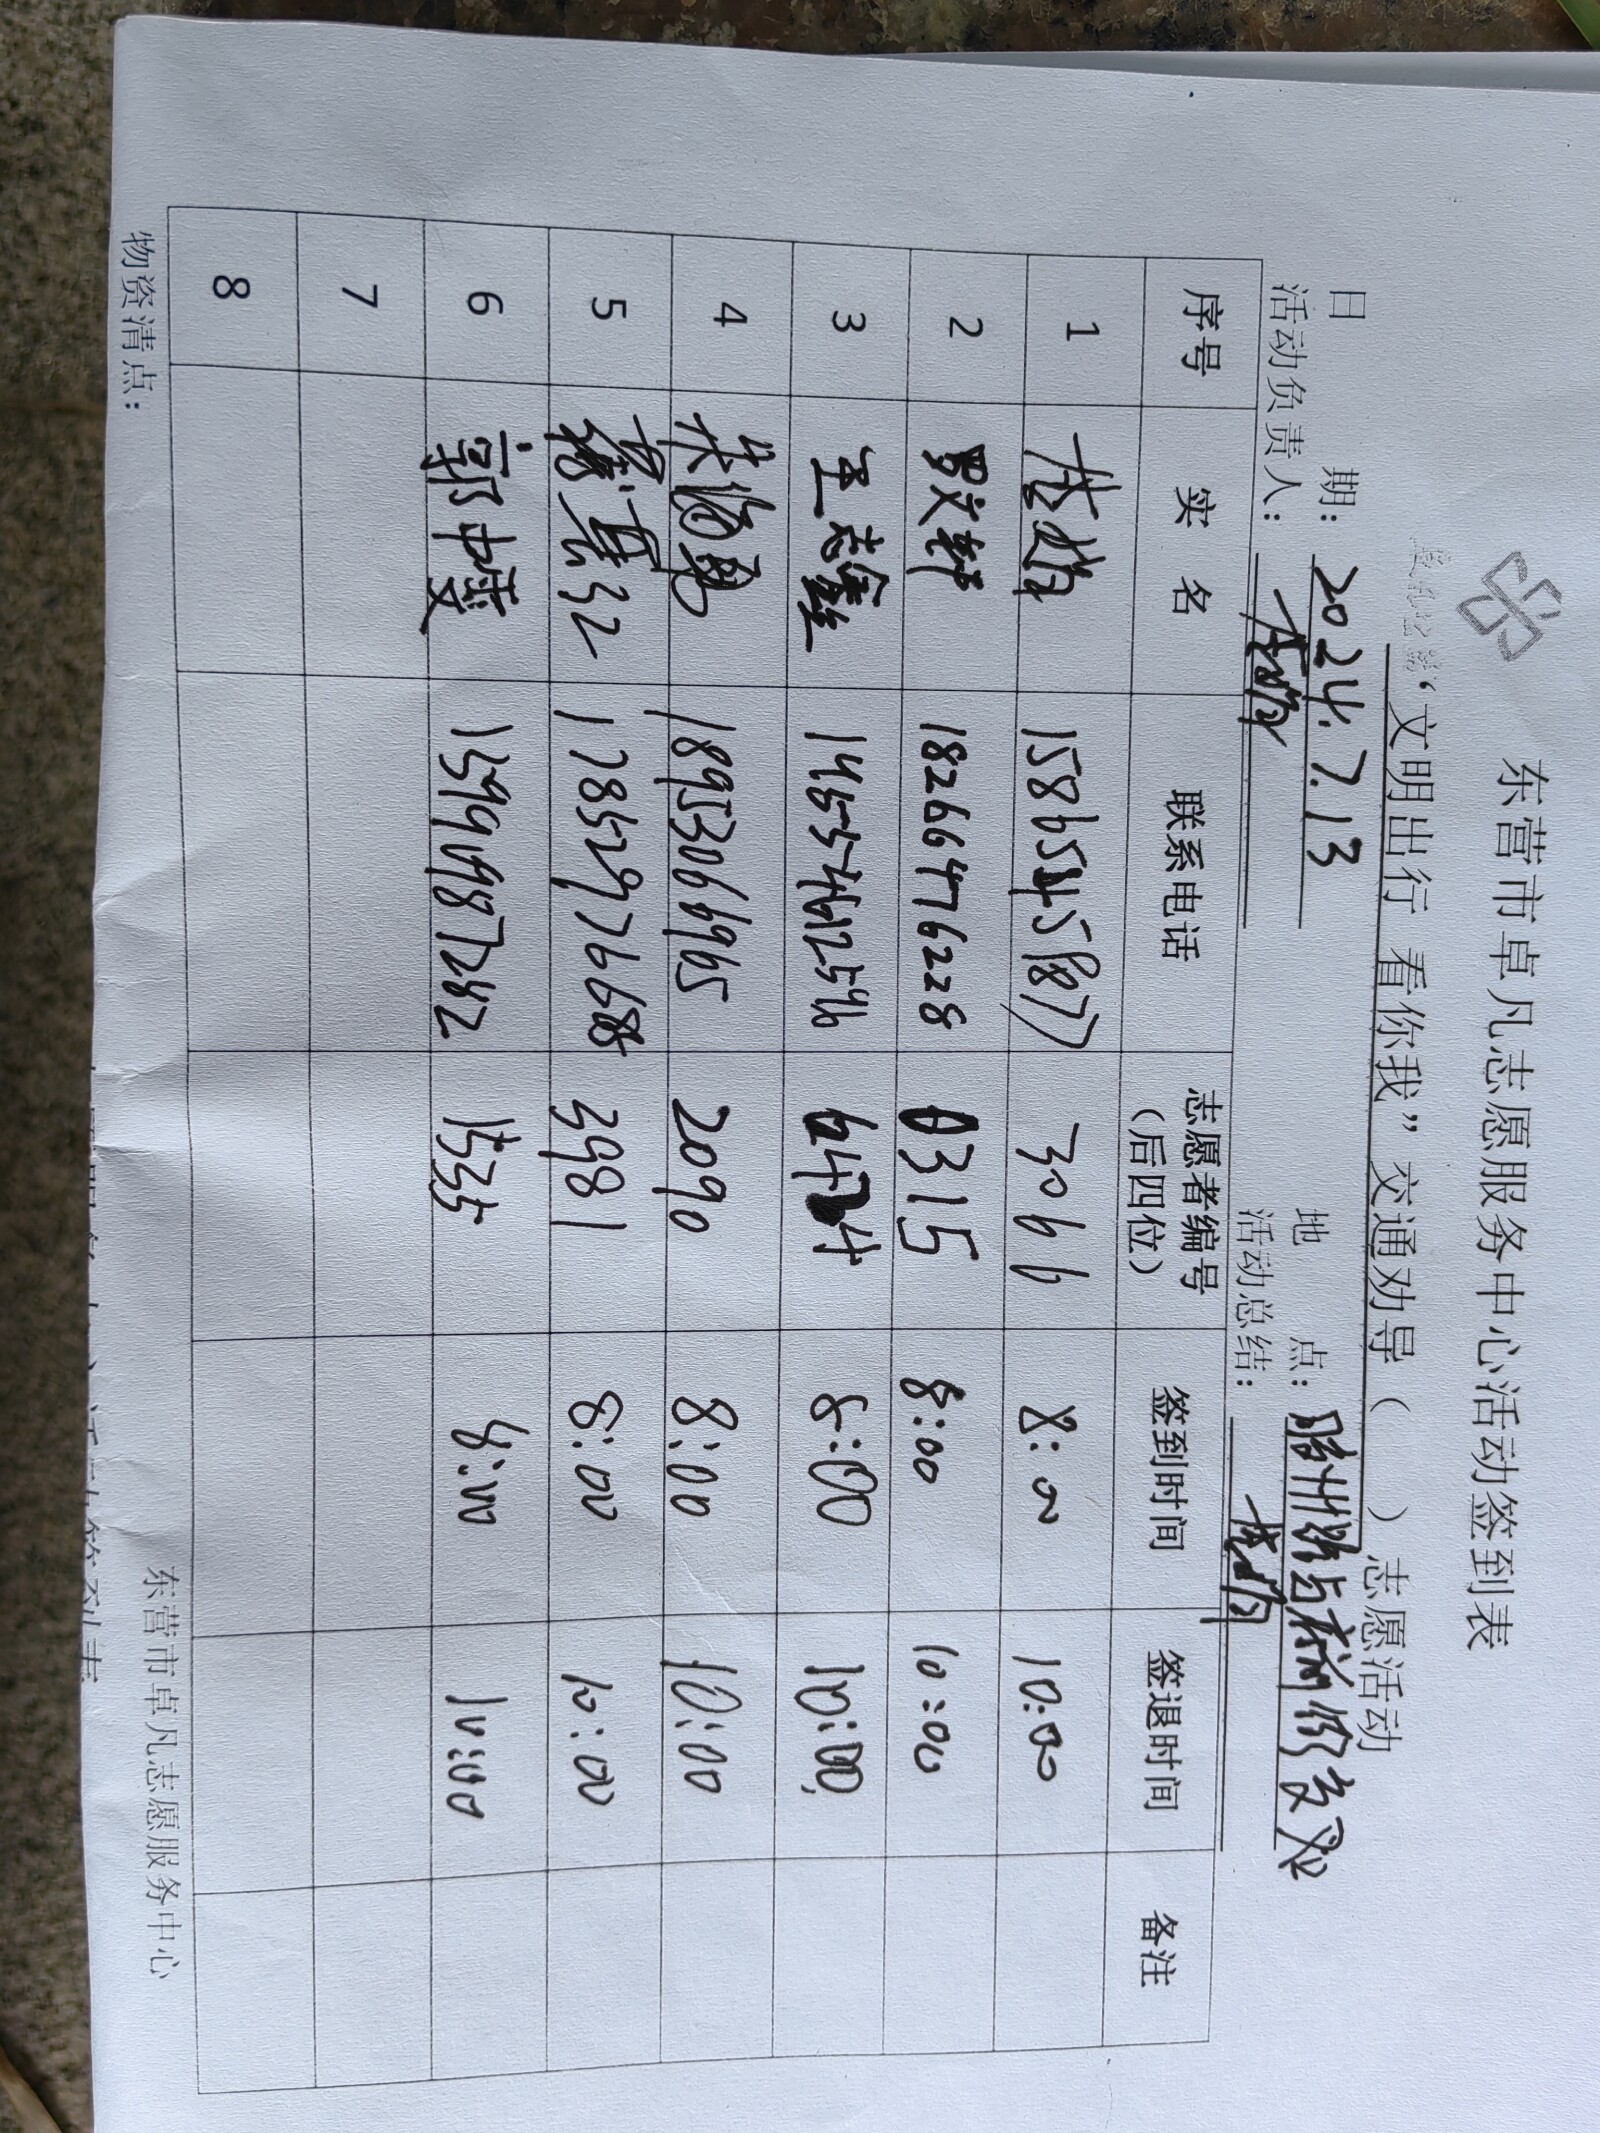 东营市卓凡志愿服务中心活动签到表
“文明出行 看你我”交通劝导（ ）志愿活动
日 期: 2024.7.13 地 点: 胶州路与府前街交叉
活动负责人: 活动总结:
序号 实 名 联系电话 志愿者编号（后四位） 签到时间 签退时间 备注
1 3066 8:00 10:00
2 罗文轩 18266476228 0315 8:00 10:00
3 王志鑫 8:00 10:00
4 18953066965 2090 8:00 10:00
5 17852976688 3981 8:00 10:00
6 郭 15991987282 1535 8:00 10:00
7
8
物资清点: 东营市卓凡志愿服务中心